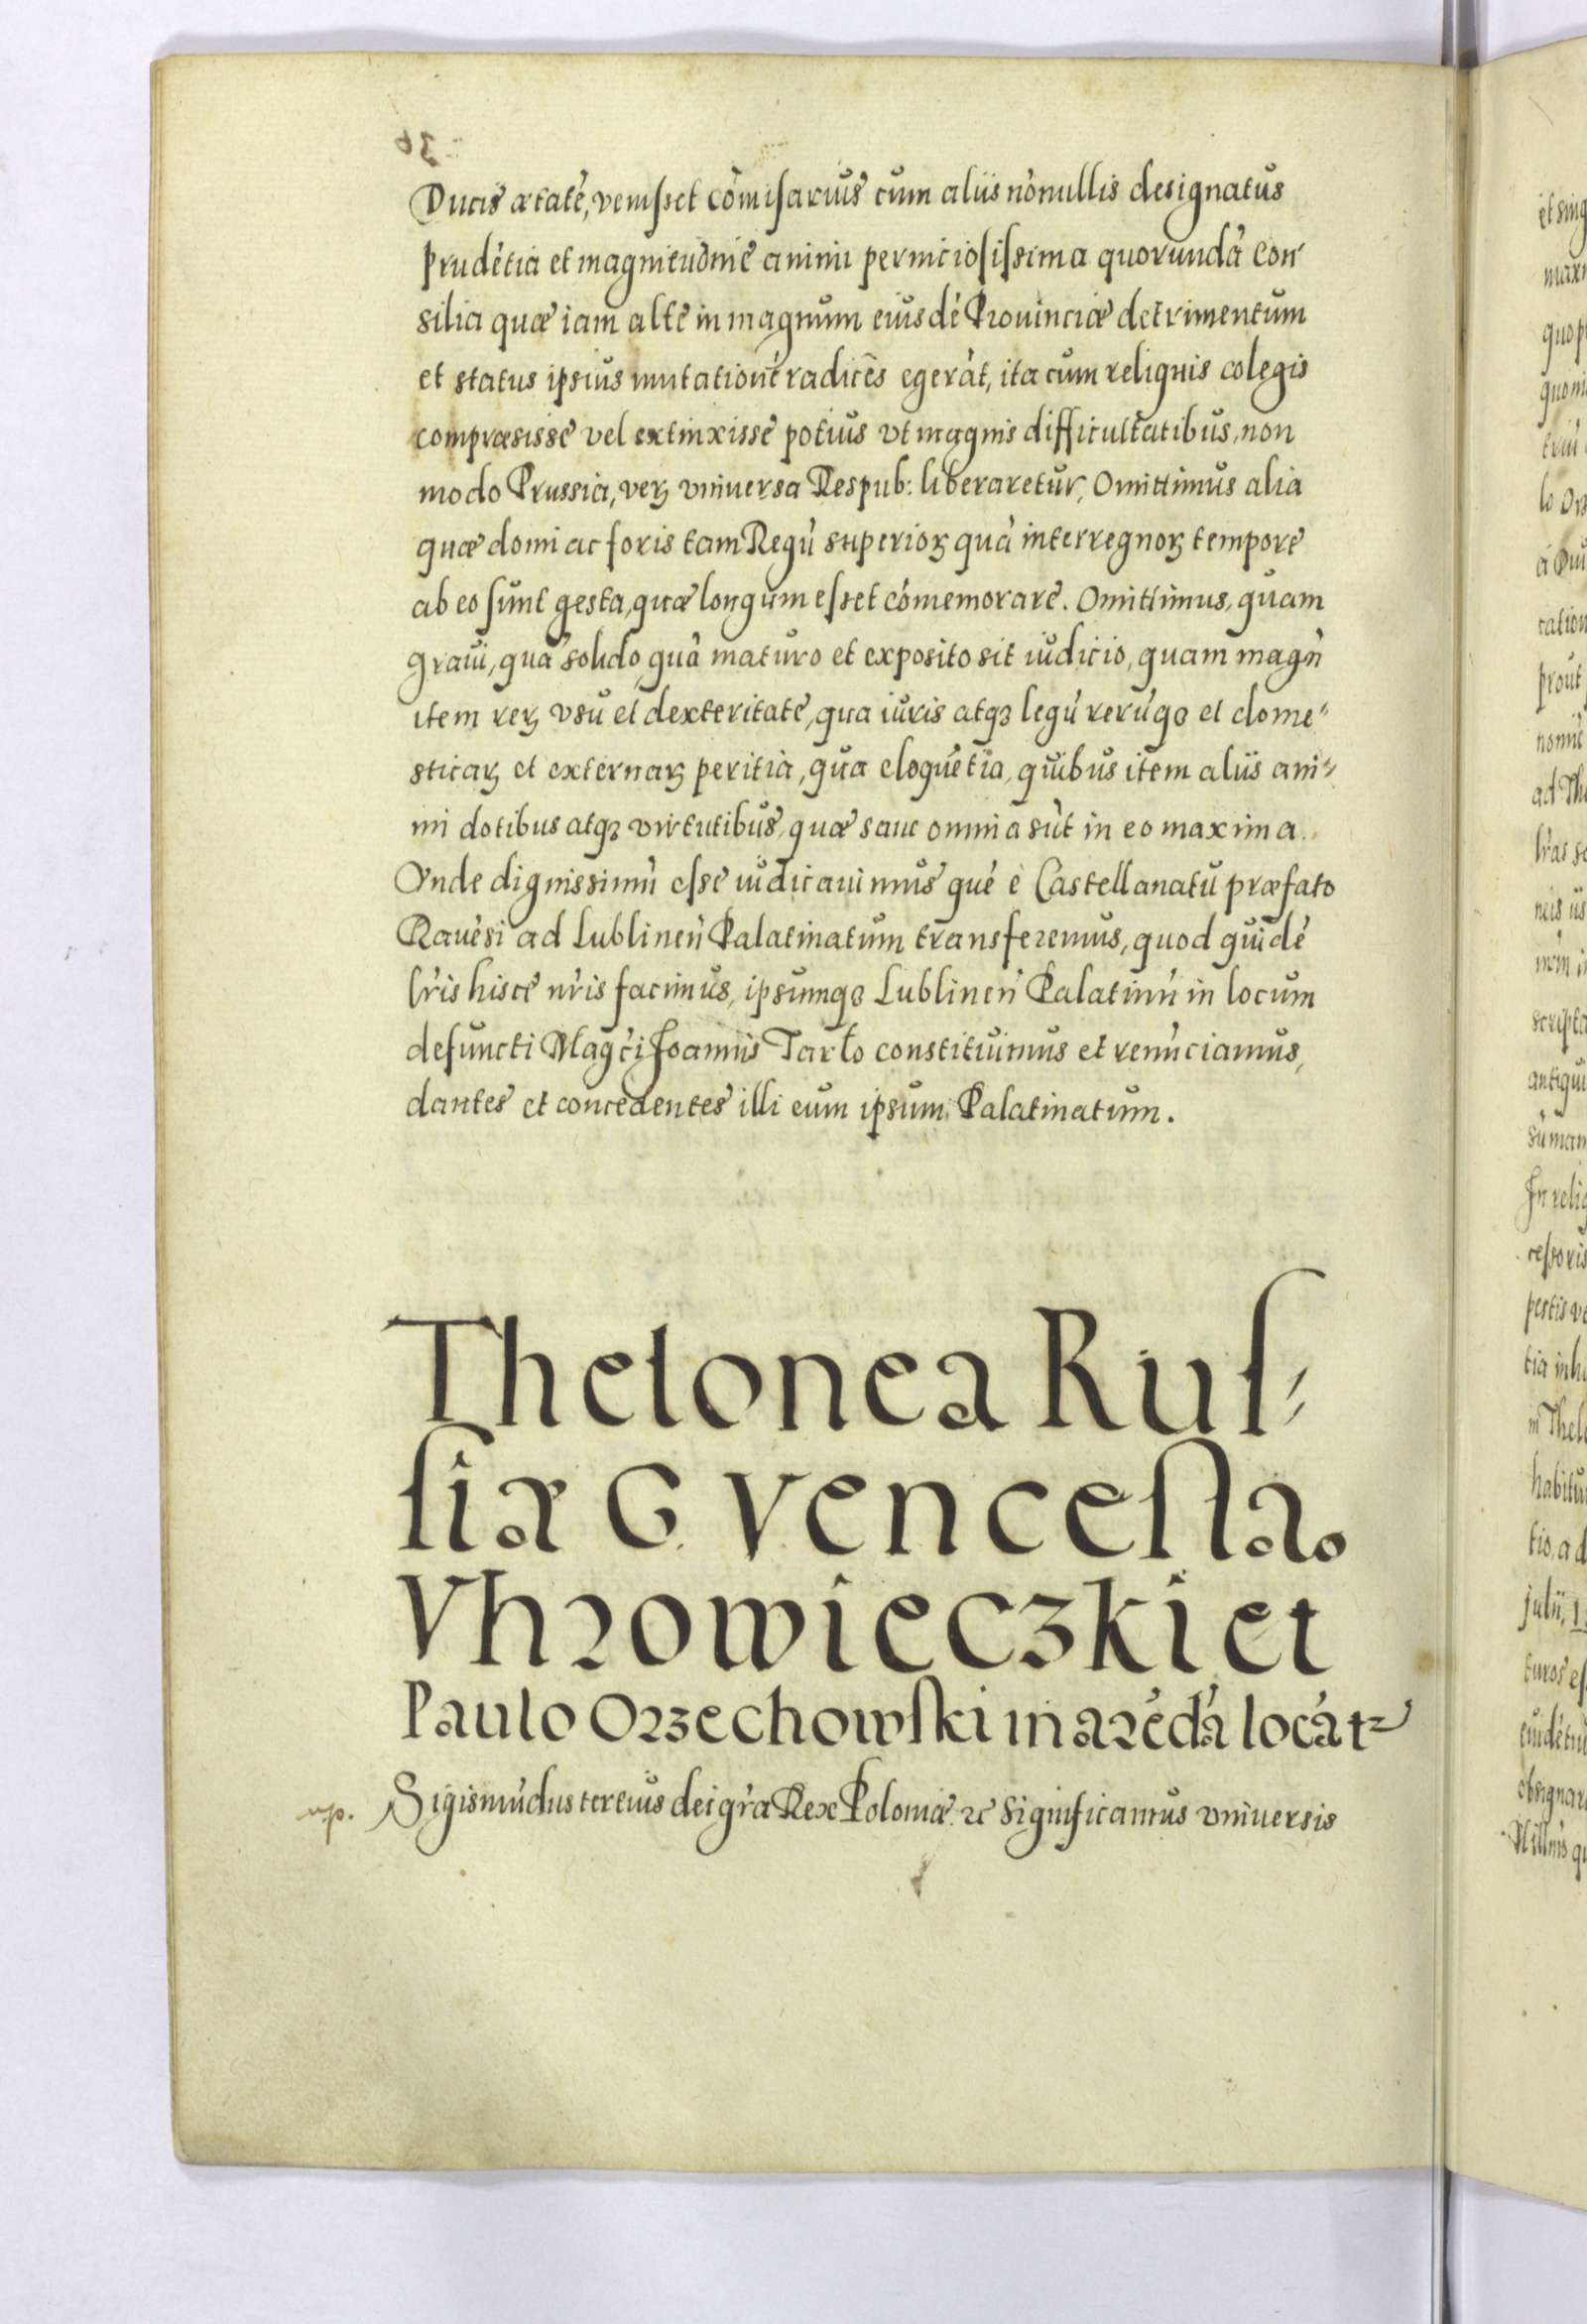 Ducis ætatē, venisset cōmisarius cum aliis nōnullis designatus
prudētia et magnitudine animi perniciosissima quorundā con-
silia quæ iam alte in magnum eiusdē Prouinciæ detrimentum
et status ipsius mutationē radices egerāt, ita cum reliquis colegis
compræsisse vel extinxisse potius vt magnis difficultatibus, non
modo Prussia, verꝝ vniuersa Respub: liberaretur, Omittimus alia
quæ domi ac foris tam Regū superioꝝ quā interregnoꝝ tempore
ab eo sunt gesta, quæ longum esset cōmemorare. Omittimus, quam
graui, quā solido, quā maturo et exposito sit iudicio, quam magñ
item rerꝝ vsu et dexteritate, qua iuris atqꝫ legū rerūqꝫ et dome-
sticaꝝ et externaꝝ peritia, qua eloquētia, quibus item aliis ani-
mi dotibus atqꝫ virtutibus, quæ sane omnia sūt in eo maxima.
Vnde dignissimū esse iudicauimus quē e Castellanatu præfato
Rauēsi ad Lublineñ Palatinatum transferemus, quod quidē
lr̃is hisce nr̃is facimus, ipsumqꝫ Lublineñ Palatinū in locum
defuncti Mag̃ci Joannis Tarło constituimus et renūciamus,
dantes et concedentes illi eum ipsum Palatinatum.
Thelonea Ruſ-
ſiæ G. Venceſla.
Vhrowieczki et
Paulo Orzechowſki in arēdā locāt
Sigismūdus tertius dei gr̃a Rex Poloniæ ꝛc Significamus vniuersis